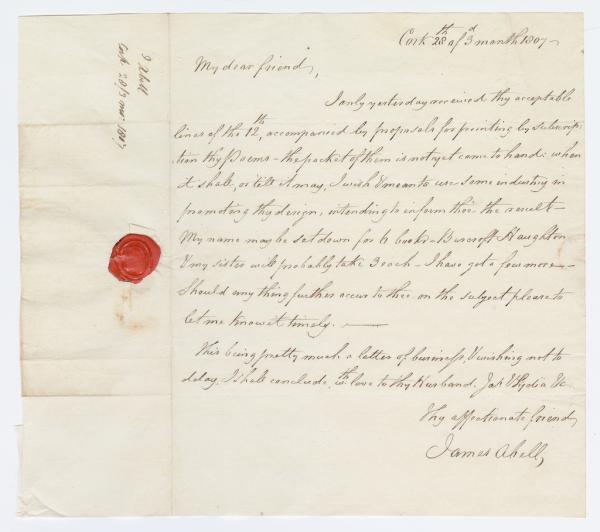 J Abell
Cork 28/3 mo: 1807
Cork 28th of 3d month 1807 -
My dear friend,
I only yesterday received thy acceptable
lines of the 12th, accompanied by proposals for printing by subscrip-
tion thy Poems - the packet of them is not yet come to hand: when
it shall, or till it may, I wish & mean to use some industry in
promoting thy design, intending to inform thee the result -
My name may be set down for 6 books - Bancroft Haughton
& my sister will probably take 3 each - I have got a few more -
Should any thing further occur to thee on the subject please to
let me know it timely. -
This being pretty much a letter of business, & wishing not to
delay, I shall conclude, wth love to thy Husband. Jas & Lydia &c
Thy affectionate friend,
James Abell,